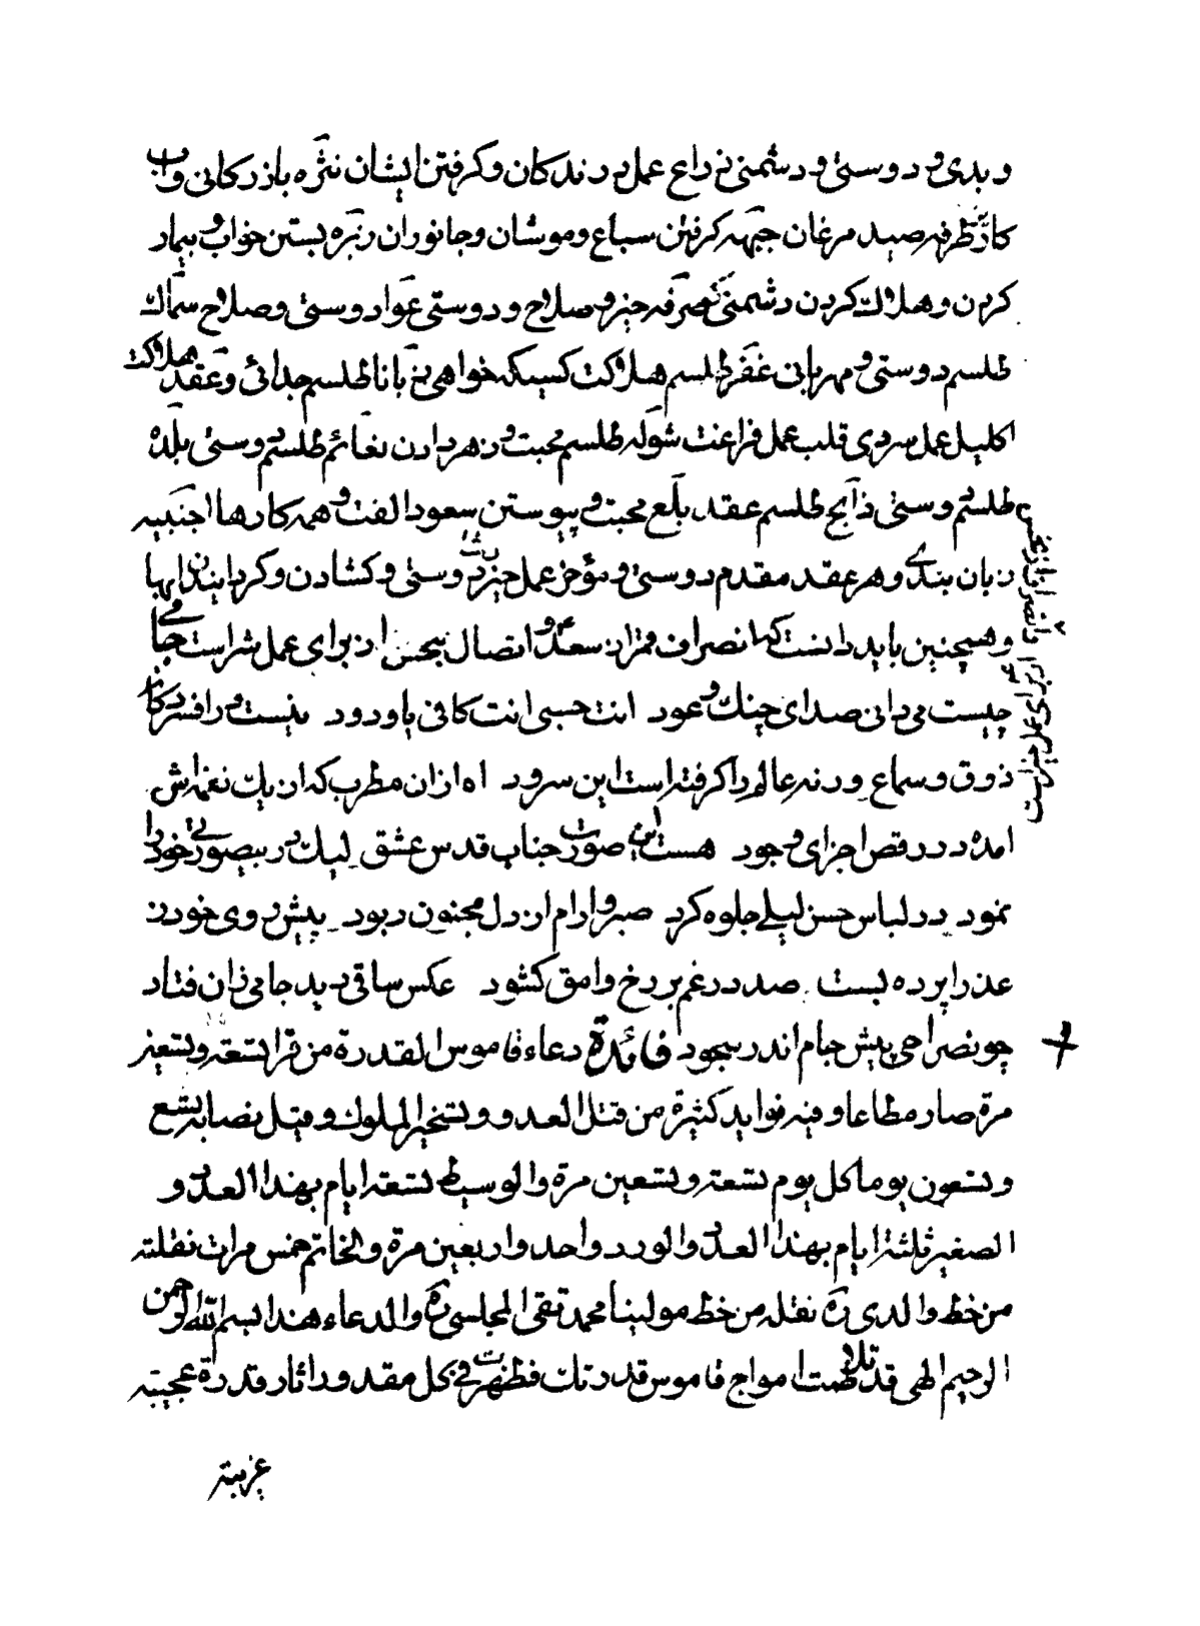 و بدی و دوستی و دشمنی ذراع عمل درندکان و کرفتن ایشان نثره بازرکانی و آب
کار طرفه صید مرغان جبهه کرفتن سباع و موشان و جانوران زبره بستن خواب و بیمار
کردن و هلاک کردن دشمن صرفه جیز و صلاح و دوستی عوا دوستی و صلاح سماک
طلسم دوستی و مهربانی غفر طلسم هلاکت کسیکه خواهی زبانا طلسم جدائی و عقد هلاکت
اکلیل عمل سردی قلب عمل فراغت شوله طلسم محبت و زهر دادن نعائم طلسم دوستی بلده
طلسم دوستی ذابح طلسم عقد بلع محبت و پیوستن سعود الفت و همه کارها اخبیه
زبان بندی و هر عقد مقدم دوستی و مؤخر عمل جیز دوستی و کشادن و کردانیدن ابها
و همچنین باید دانست که انصراف قمر از سعد و اتصال بنحس از برای عمل شر است جامی
چیست می دانی صدای چنک و عود انت حسبی انت کافی یا ودود نیست در افسردکان
ذوق و سماع ورنه عالم را کرفته است این سرود اه ازان مطرب که از یک نغمه اش
امده در رقص اجزای وجود هست این صورت جناب قدس عشق لیک در بیصورتی خود را
نمود در لباس حسن لیلی جلوه کرد صبر و ارام از دل مجنون ربود پیش روی خود ز
عذرا پرده بست صد در غم بر رخ وامق کشود عکس ساقی دید جامی زان فتاد
چو نصراحی پیش جام اندر سجود فائدة دعاء قاموس القدرة من قرا تسعة و تسعین
مرة صار مطاعا و فیه فواید کثیرة من قتل العدو و تسخیر الملوک و قیل نصابه تسع
و تسعون یوما کل یوم تسعة و تسعین مرة و الوسیط تسعة ایام بهذا العدد و
الصغیر ثلثة ایام بهذا العدد و الورد واحد و اربعین مرة و الخاتم خمس مرات نقلته
من خط والدی ره نقله من خط مولینا محمد تقی المجلسی ره و الدعاء هذا بسم الله الرحمن
الرحیم الهی قد تلاطمت امواج قاموس قدرتک فظهرت فی کل مقدور اثار قدرة عجیبة
غریبة